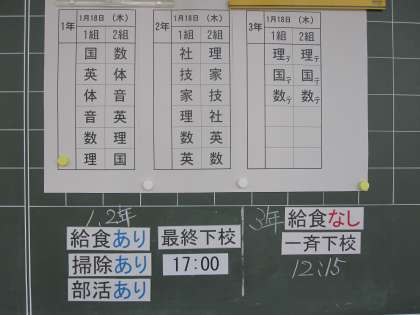 1年 1月18日 (木)
1組 2組
国 数
英 体
体 音
音 英
数 理
理 国
2年 1月18日 (木)
1組 2組
社 理
技 家
家 技
理 社
数 英
英 数
3年 1月18日 (木)
1組 2組
理テ 理テ
国テ 国テ
数テ 数テ
1,2年
給食あり
掃除あり
部活あり
最終下校
17:00
3年
給食なし
一斉下校
12:15